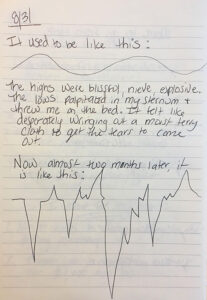 8/31
It used to be like this:
The highs were blissful, nieve, explosive.
The lows palpitated in my sternum +
threw me on the bed. It felt like
desperately wringing out a moist terry
cloth to get the tears to come
out.
Now, almost two months later, it
is like this: